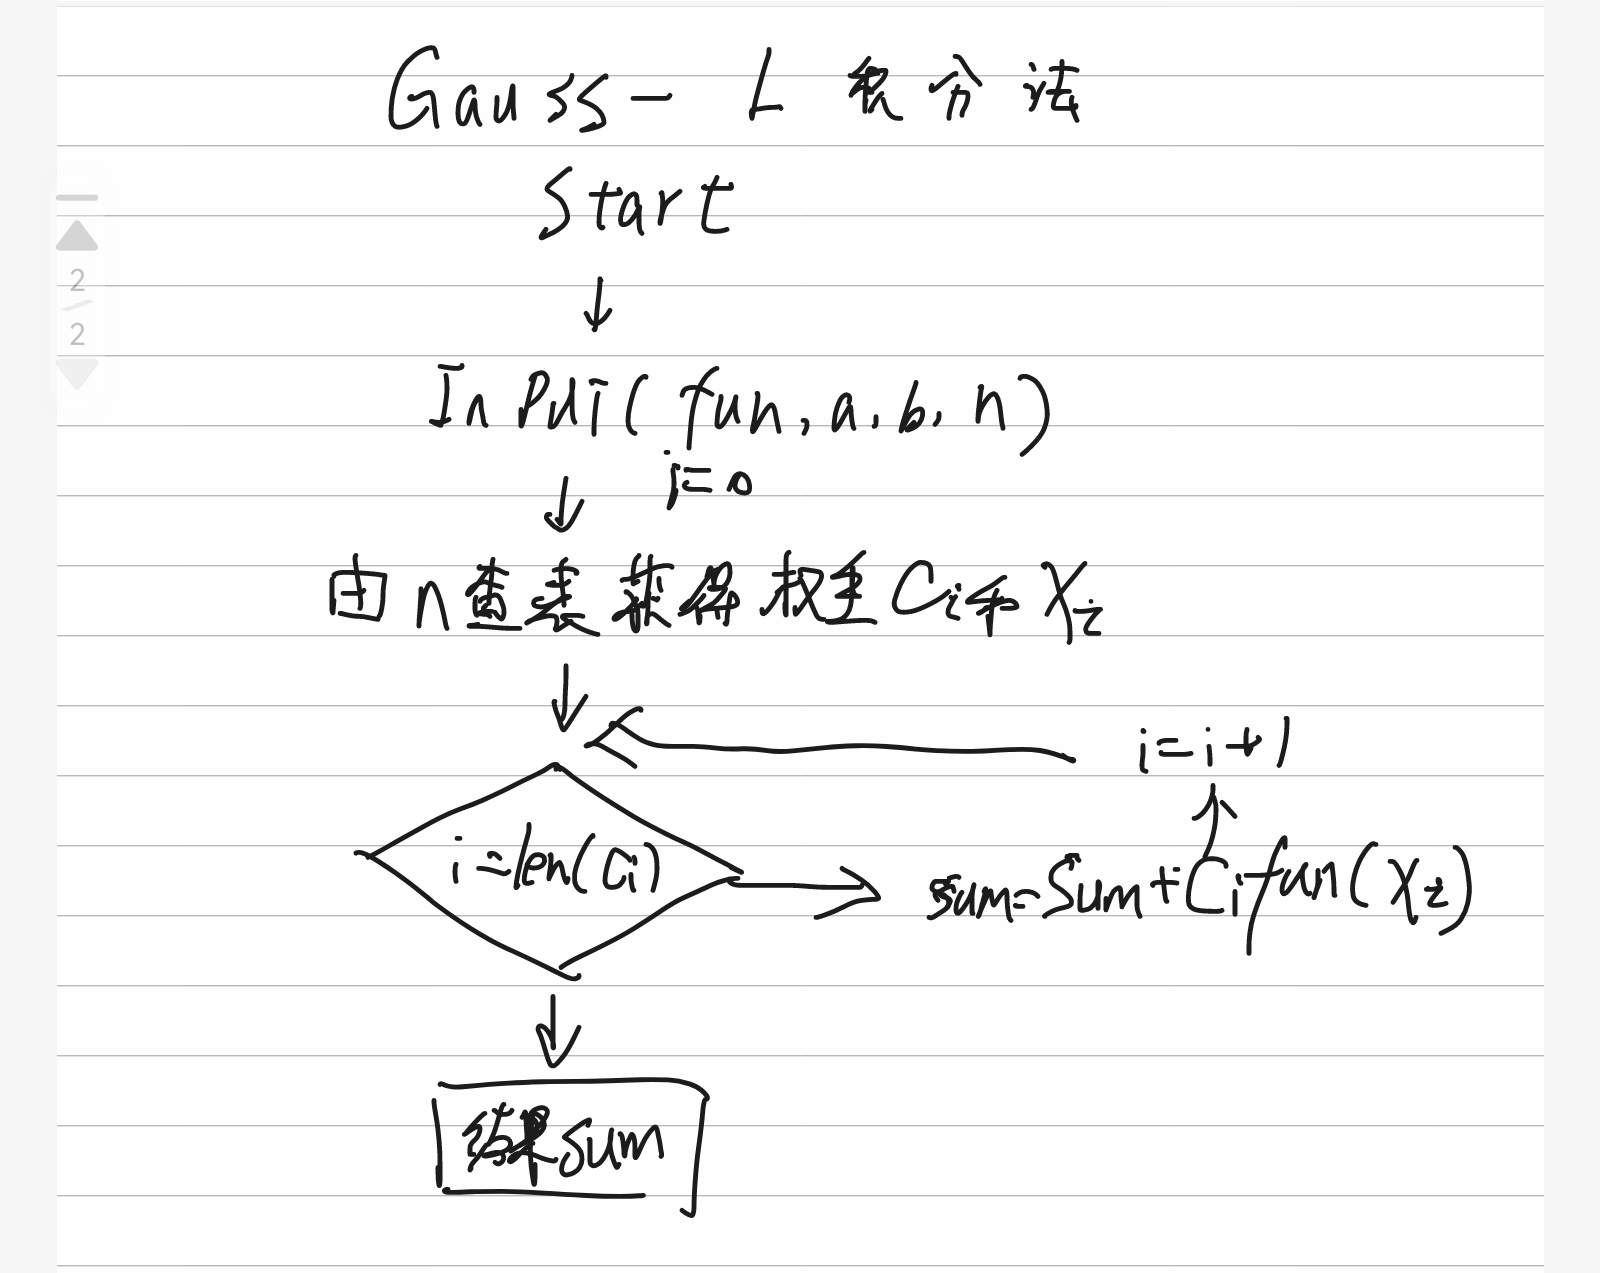 Gauss- L 积分法
Start
Input(fun, a, b, n)
i=0
由n查表获得权重Ci和Xi
i=i+1
i=len(Ci)
sum=Sum+Cifun(Xi)
结果sum
2
2